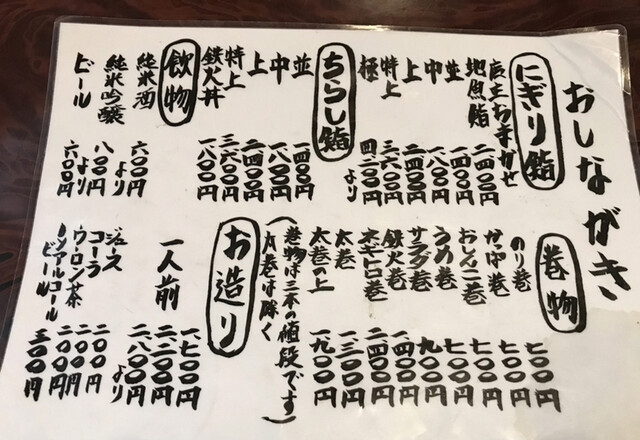 おしながき
にぎり鮨
店主おまかせ
地魚鮨 二四〇〇円
並 一四〇〇円
中 一八〇〇円
上 二四〇〇円
特上 三六〇〇円
極 四二〇〇円より
ちらし鮨
並 一四〇〇円
中 一八〇〇円
上 二四〇〇円
特上 三六〇〇円
鉄火丼 一八〇〇円
飲物
純米酒 六〇〇円より
純米吟醸 八〇〇円より
ビール 六〇〇円
巻物
のり巻 七〇〇円
かっぱ巻 七〇〇円
おしんこ巻 七〇〇円
うめ巻 七〇〇円
サラダ巻 九〇〇円
鉄火巻 一四〇〇円
ネギトロ巻 二四〇〇円
太巻 一三〇〇円
太巻の上 一九〇〇円
(巻物は三本の値段です)
太巻は除く
お造り
一人前 一七〇〇円
二二〇〇円
二八〇〇円より
ジュース 二〇〇円
コーラ 二〇〇円
ウーロン茶 二〇〇円
ノンアルコール
ビール 三〇〇円